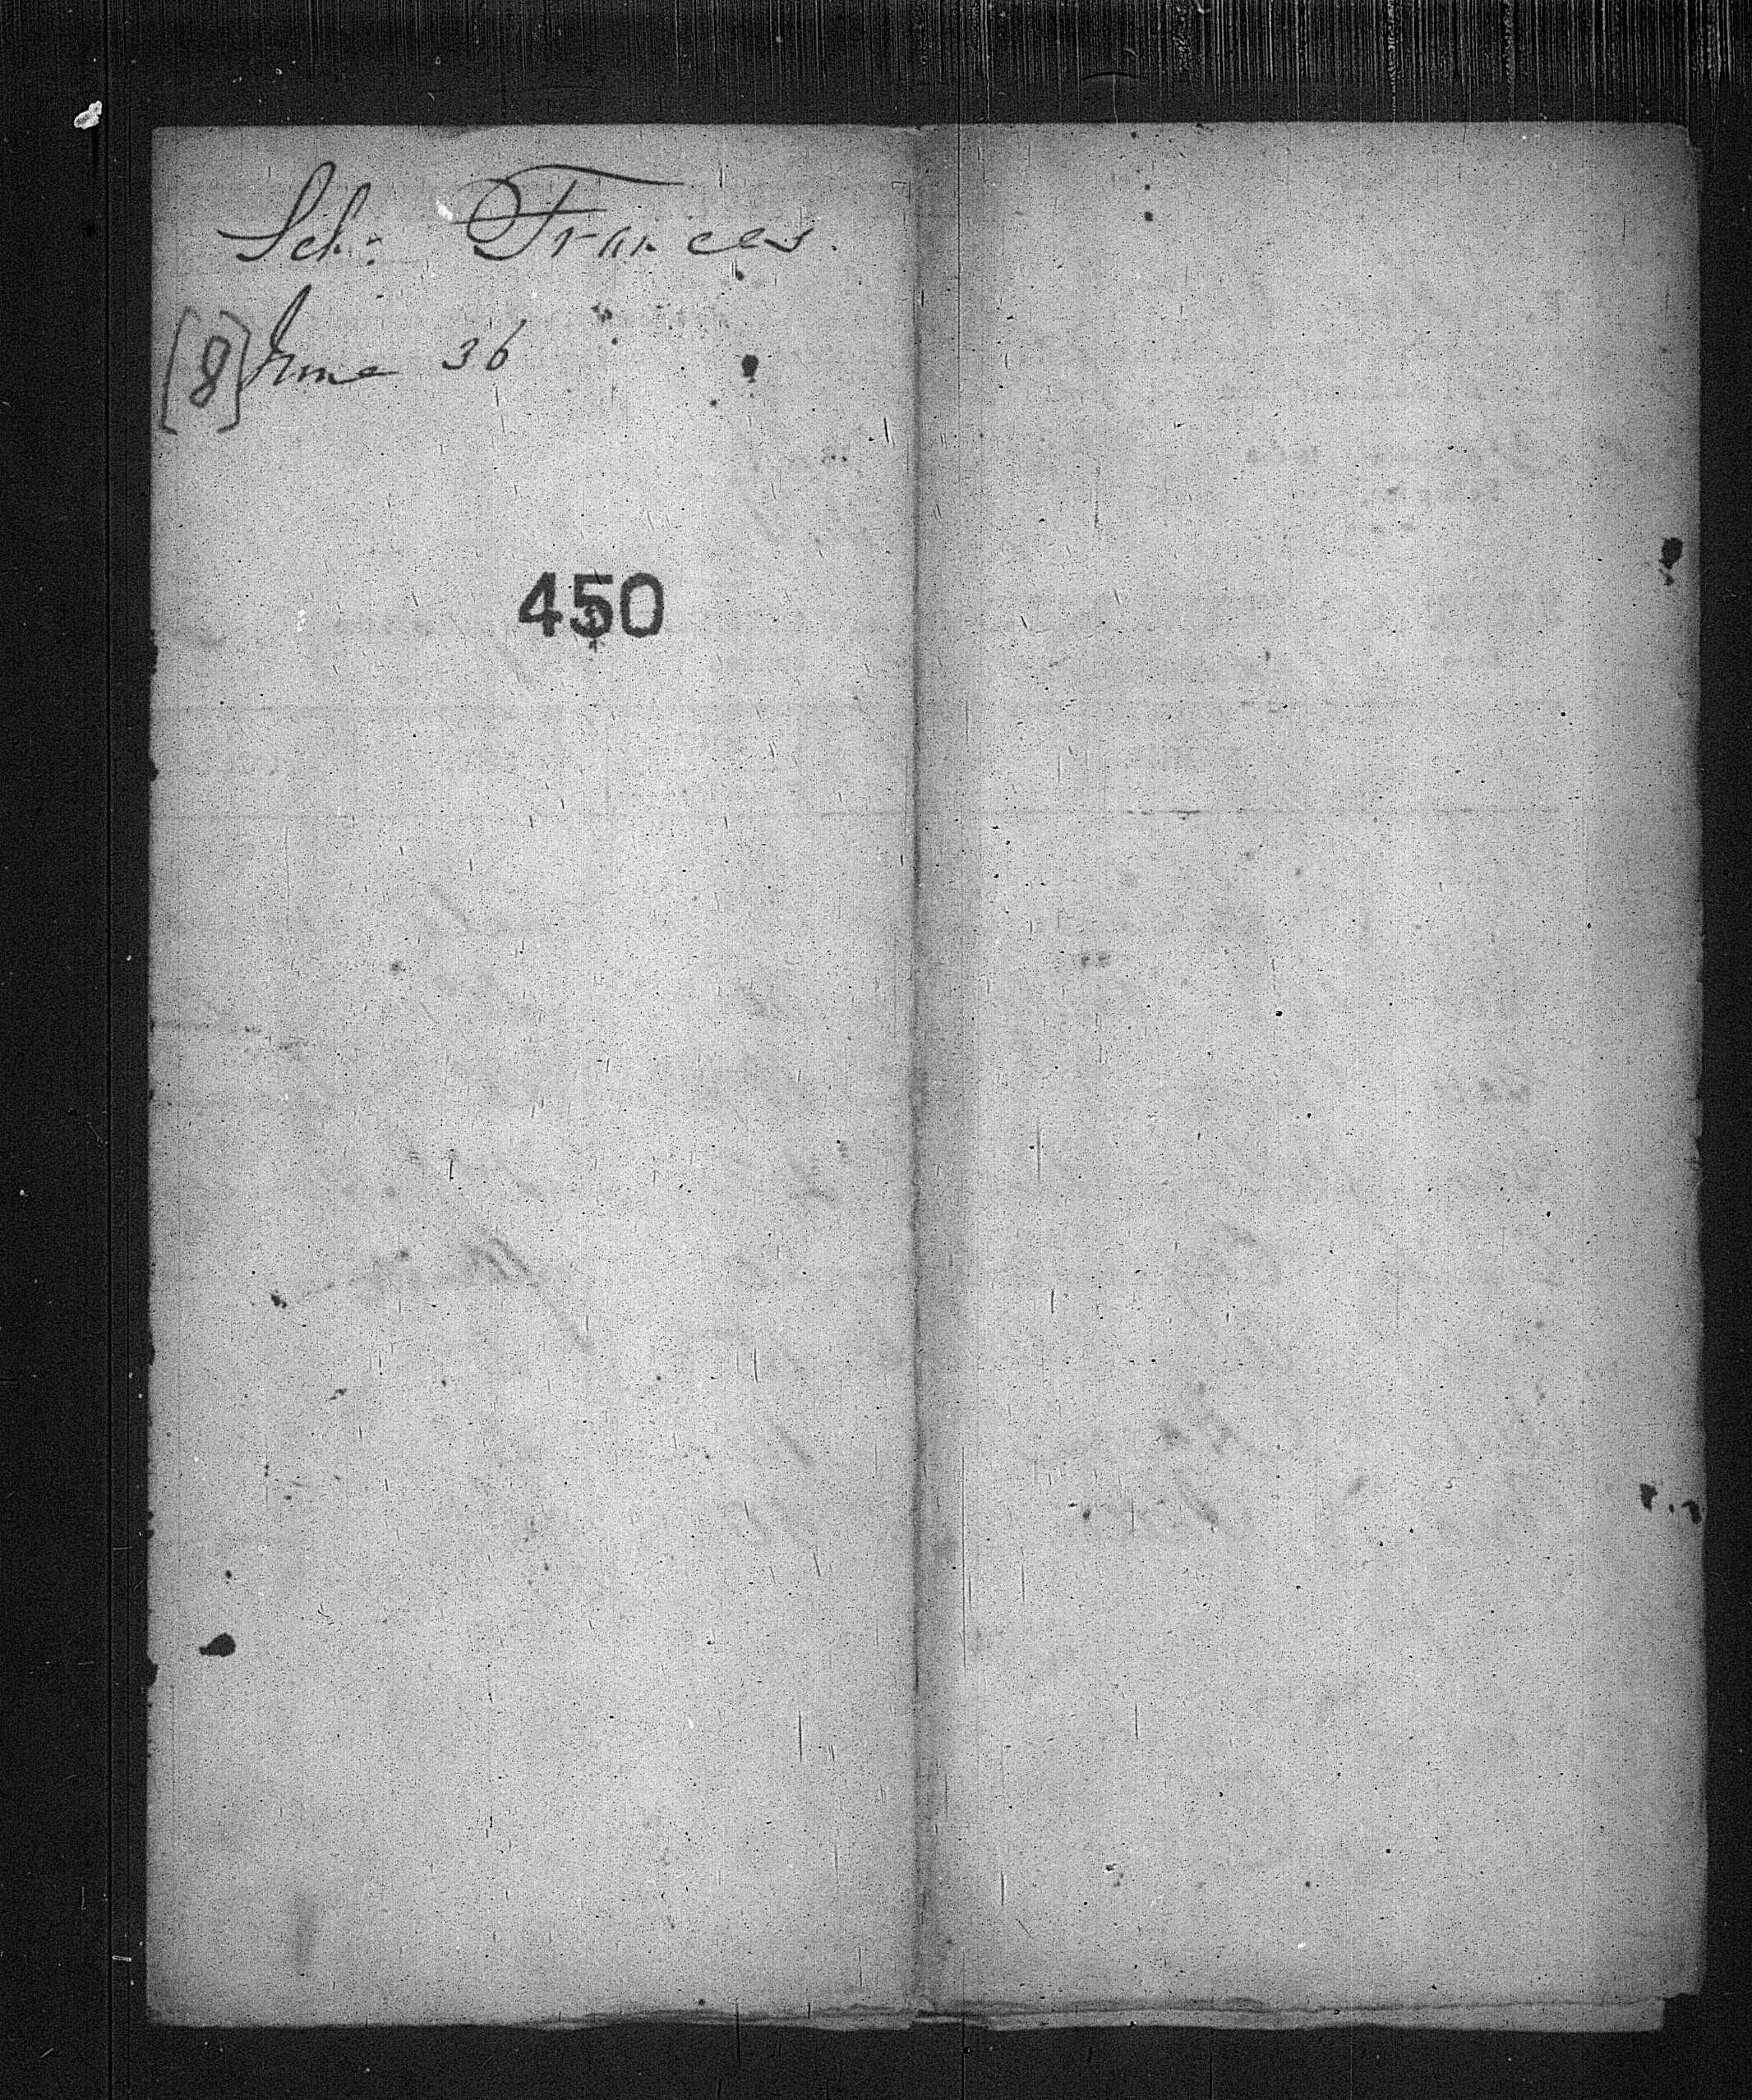 Sch: Frances.
[8] June 36
450